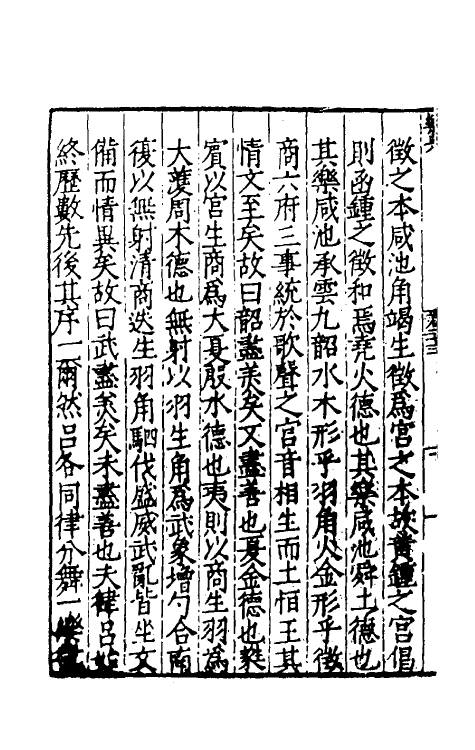 徵之本咸池角竭生徵爲宮之本故黃鍾之宮倡
則函鍾之徵和焉堯火德也其樂咸池舜土德也
其樂咸池承雲九韶水木形乎羽角火金形乎徵
商六府三事統於歌聲之宮音相生而土恒王其
情文至矣故曰韶盡美矣又盡善也夏金德也蕤
賓以宮生商爲大夏殷水德也夷則以商生羽爲
大濩周木德也無射以羽生角爲武象增勺合商
復以無射清商迭生羽角駟伐盛威武亂皆坐文
備而情異矣故曰武盡美矣未盡善也夫律呂
終歷數先後其序一爾然呂各同律分舞一樂